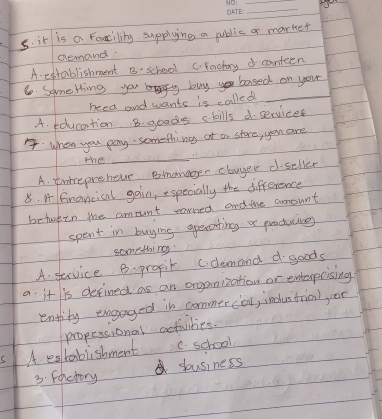 NO:
DATE:
5. it is a Facility supplying a public or market
demand.
A. establishment B. school C. factory d canteen
6. Something you buy based on your
need and wants is called
A. education B. goods c. bills d. services
7. When you pay something at a store, you are
the
A. entreprenheur B manager c buyer d seller
8. A financical gain, especially the difference
between the amount earned and the amount
spent in buying operating or producing
something.
A. service B. profit C. demand d. goods
9. it is defined as an organization or enterprising
entity engaged in commercial, industrial, or
professional activities.
A establishment C. school
B. factory d business